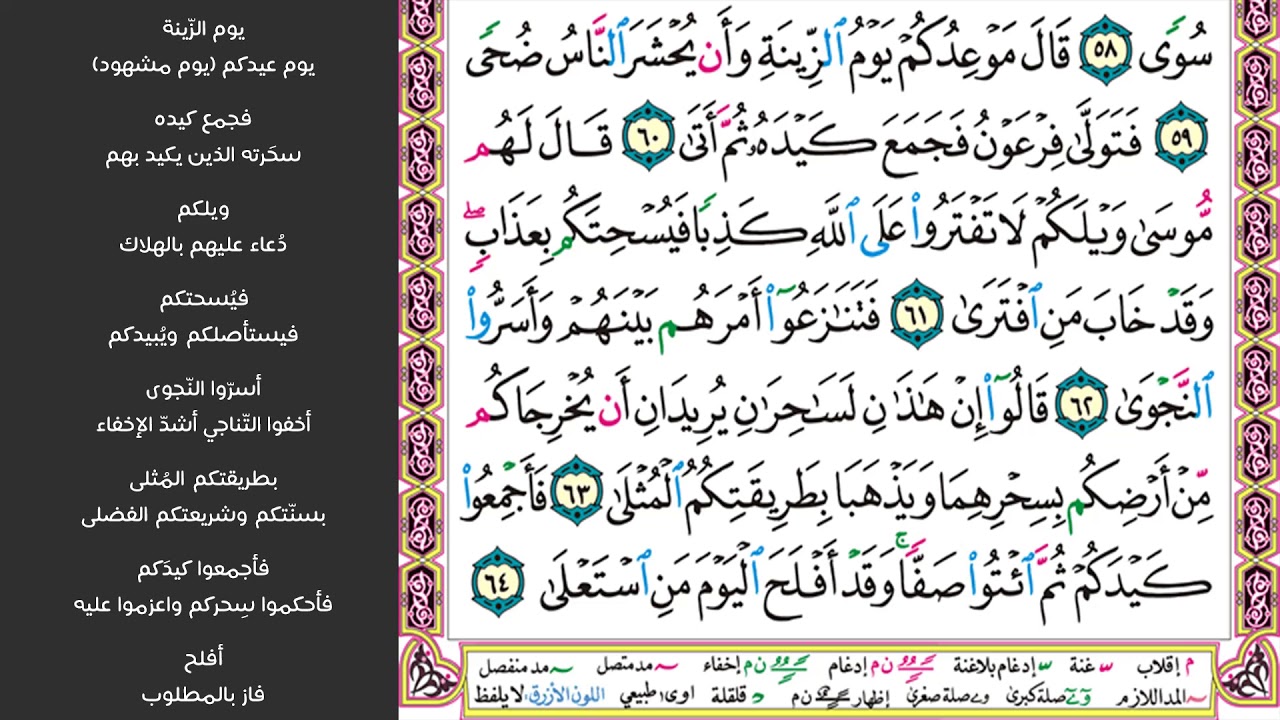 سُوًى ٥٨ قَالَ مَوْعِدُكُمْ يَوْمُ ٱلزِّينَةِ وَأَن يُحْشَرَ ٱلنَّاسُ ضُحًى
٥٩ فَتَوَلَّىٰ فِرْعَوْنُ فَجَمَعَ كَيْدَهُۥ ثُمَّ أَتَىٰ ٦٠ قَالَ لَهُم
مُّوسَىٰ وَيْلَكُمْ لَا تَفْتَرُوا۟ عَلَى ٱللَّهِ كَذِبًا فَيُسْحِتَكُم بِعَذَابٍۢ ۖ
وَقَدْ خَابَ مَنِ ٱفْتَرَىٰ ٦١ فَتَنَـٰزَعُوٓا۟ أَمْرَهُم بَيْنَهُمْ وَأَسَرُّوا۟
ٱلنَّجْوَىٰ ٦٢ قَالُوٓا۟ إِنْ هَـٰذَٰنِ لَسَـٰحِرَٰنِ يُرِيدَانِ أَن يُخْرِجَاكُم
مِّنْ أَرْضِكُم بِسِحْرِهِمَا وَيَذْهَبَا بِطَرِيقَتِكُمُ ٱلْمُثْلَىٰ ٦٣ فَأَجْمِعُوا۟
كَيْدَكُمْ ثُمَّ ٱئْتُوا۟ صَفًّا ۚ وَقَدْ أَفْلَحَ ٱلْيَوْمَ مَنِ ٱسْتَعْلَىٰ ٦٤
م إقلاب غنة إدغام بلاغنة ن م إدغام ن م إخفاء مد متصل مد منفصل
المد اللازم صلة كبرى صلة صغرى إظهار ن م قلقلة اوى طبيعي اللون الأزرق: لا يلفظ
يوم الزّينة
يوم عيدكم (يوم مشهود)
فجمع كيده
سحَرته الذين يكيد بهم
ويلكم
دُعاء عليهم بالهلاك
فيُسحتكم
فيستأصلكم ويُبيدكم
أسرّوا النّجوى
أخفوا التّناجي أشدّ الإخفاء
بطريقتكم المُثلى
بسنّتكم وشريعتكم الفضلى
فأجمعوا كيدَكم
فأحكموا سِحركم واعزموا عليه
أفلح
فاز بالمطلوب